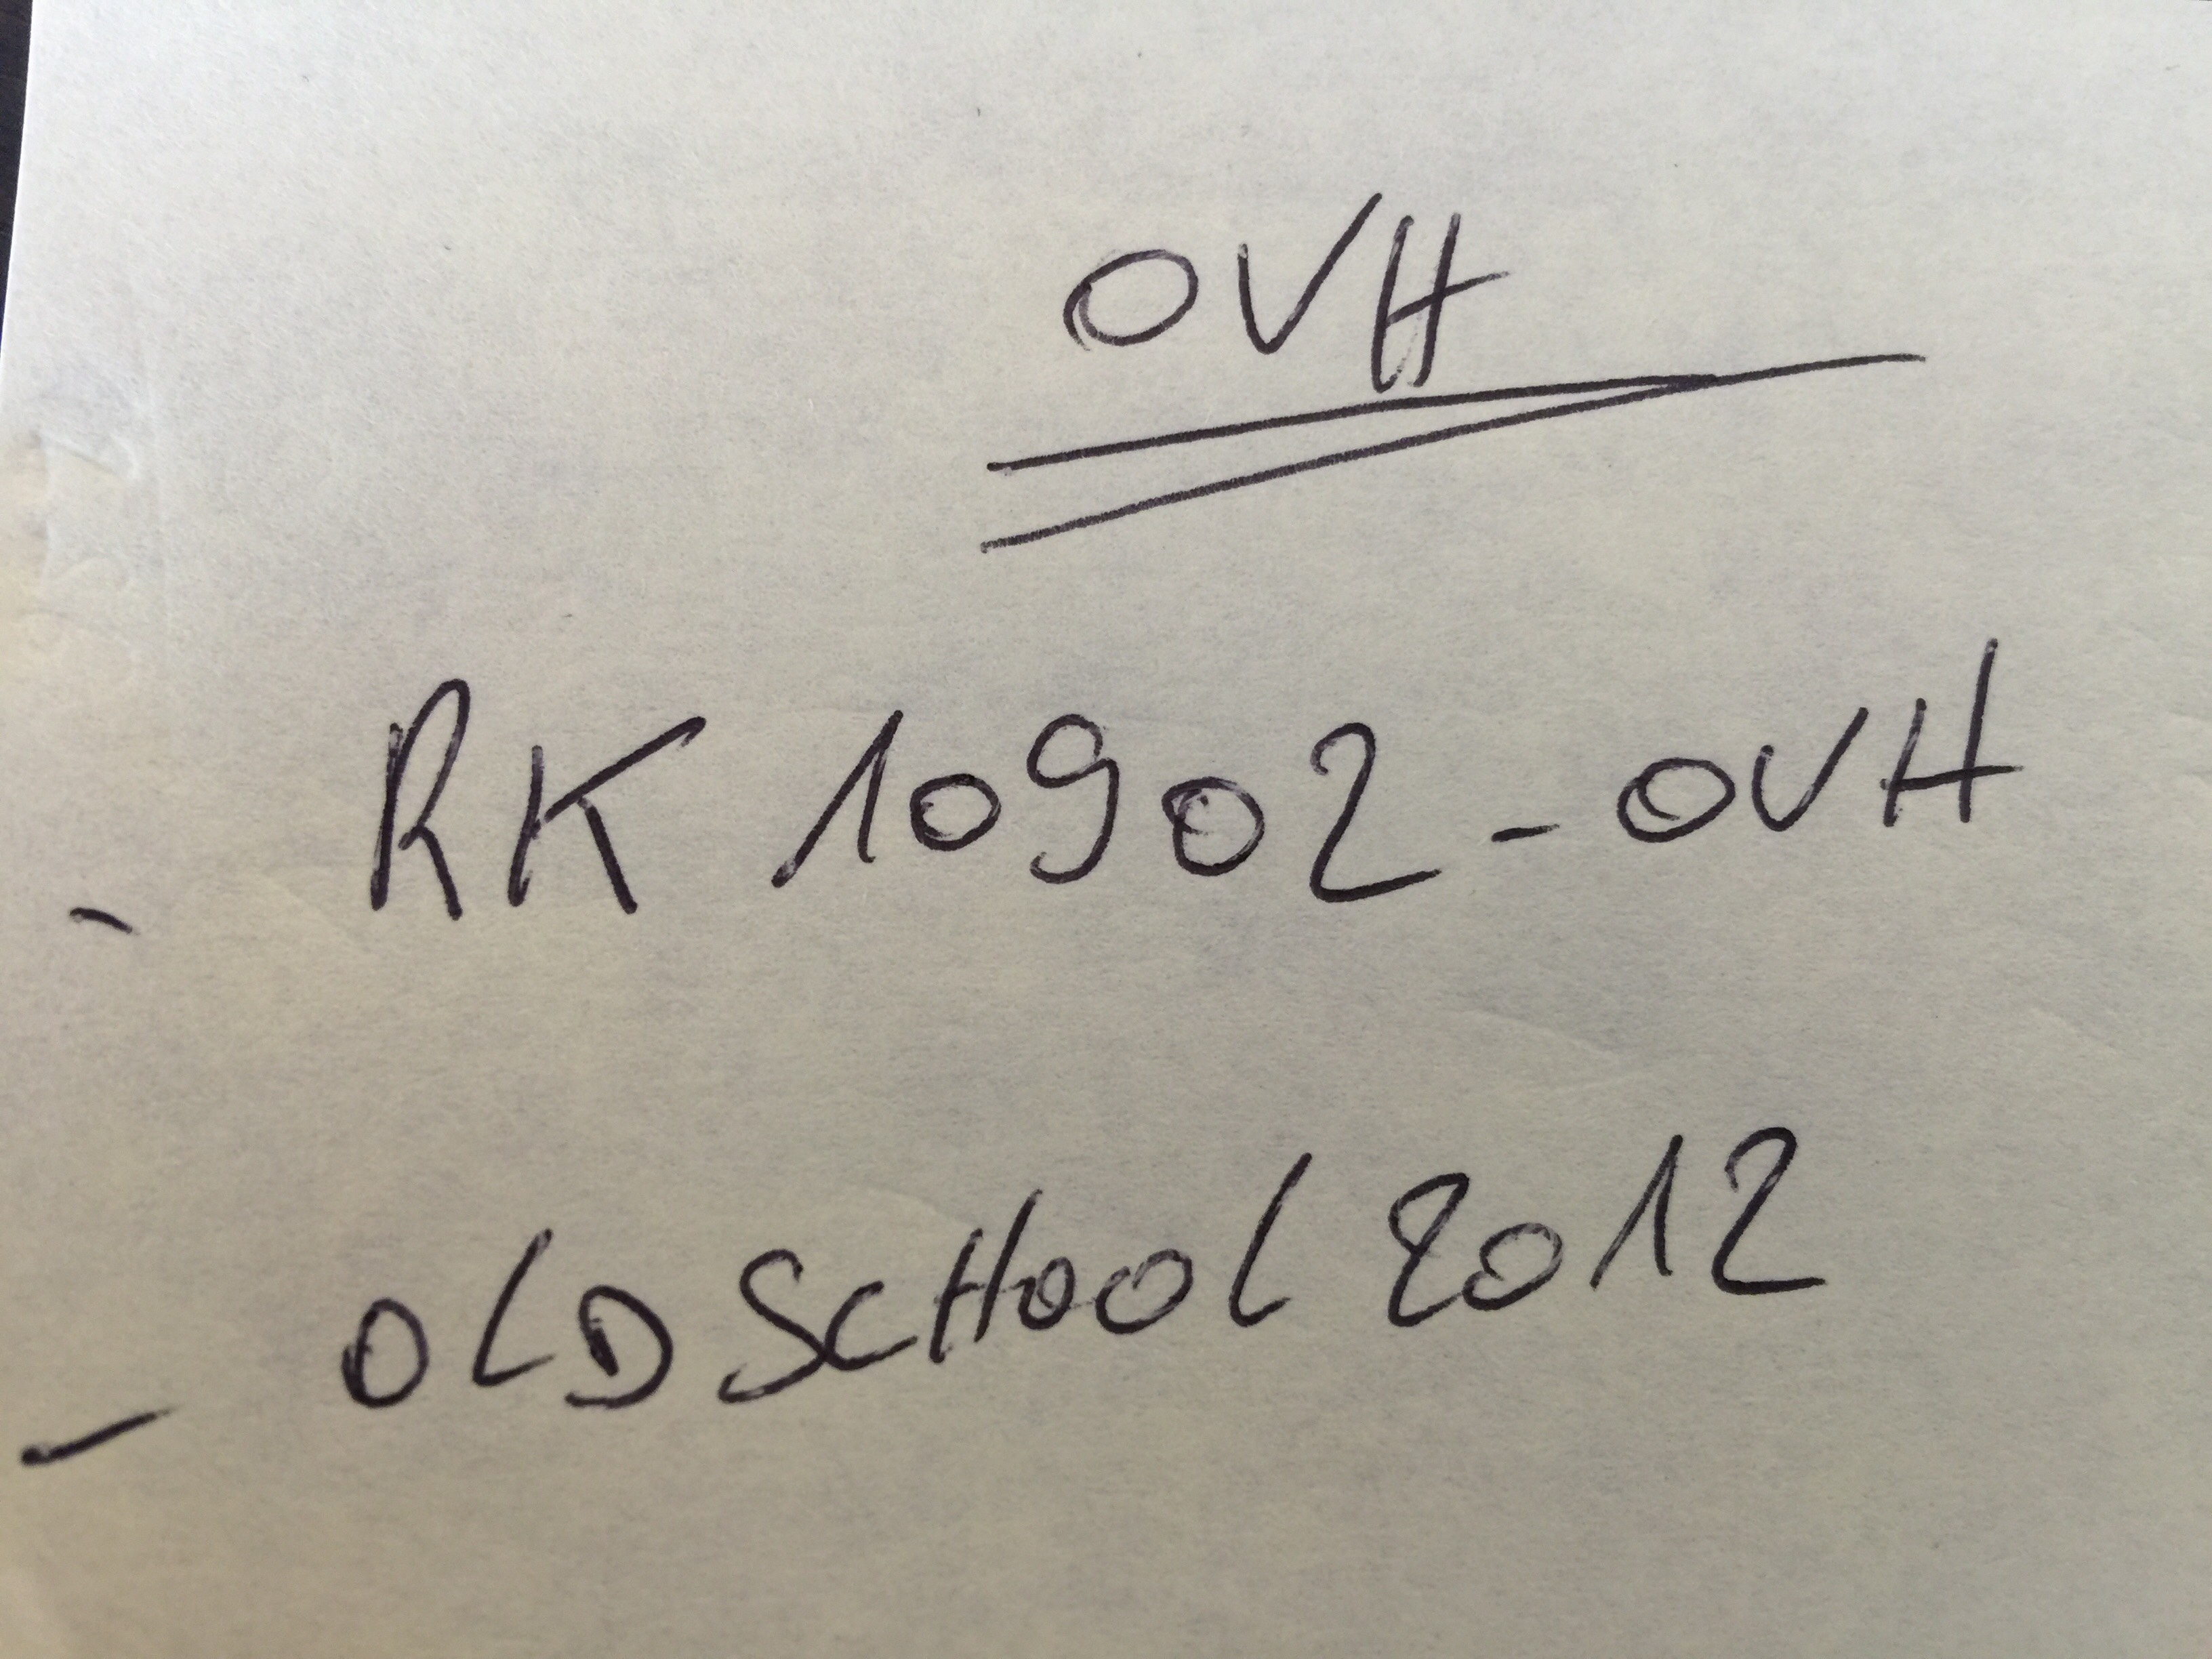 OVH
- RK 10902-OVH
- OLDSCHOOL2012